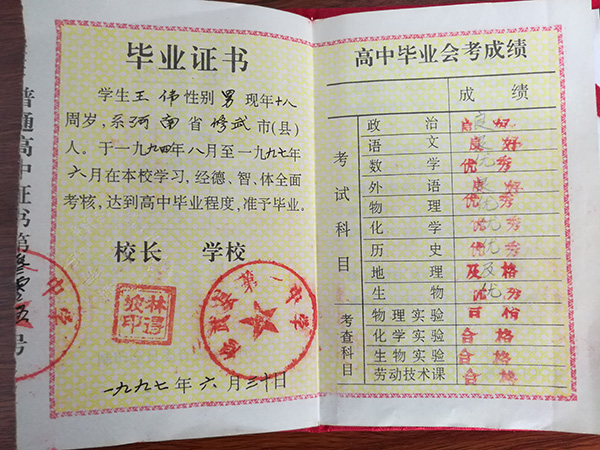 毕业证书
学生王伟性别男现年十八
周岁，系河南省修武市(县)
人。于一九九四年八月至一九九七年
六月在本校学习，经德、智、体全面
考核，达到高中毕业程度，准予毕业。
校长 学校
林得
印
修武县第一中学
一九九七年六月三十日
普通高中证书第 号
中学
高中毕业会考成绩
成绩
考试科目
政治 良好
语文 良好
数学 优秀
外语 良好
物理 优秀
化学 优秀
历史 优秀
地理 及格
生物 优秀
考查科目
物理实验 合格
化学实验 合格
生物实验 合格
劳动技术课 合格